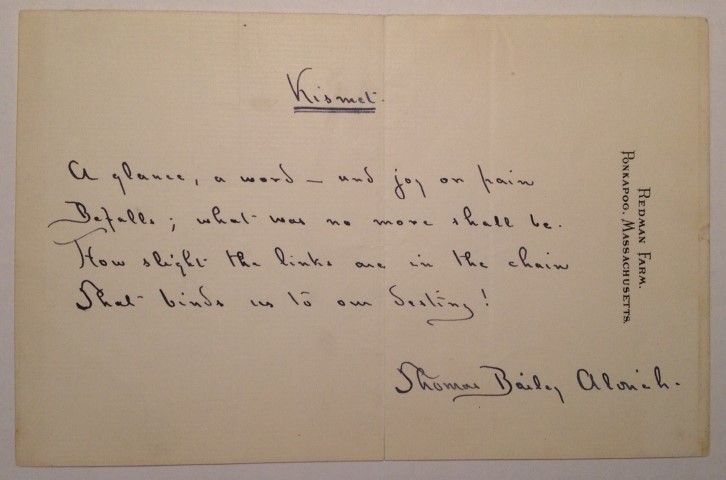 Kismet.
A glance, a word — and joy or pain
Befalls; what was no more shall be.
How slight the links are in the chain
That binds us to our destiny!
Thomas Bailey Aldrich.
REDMAN FARM.
PONKAPOG, MASSACHUSETTS.